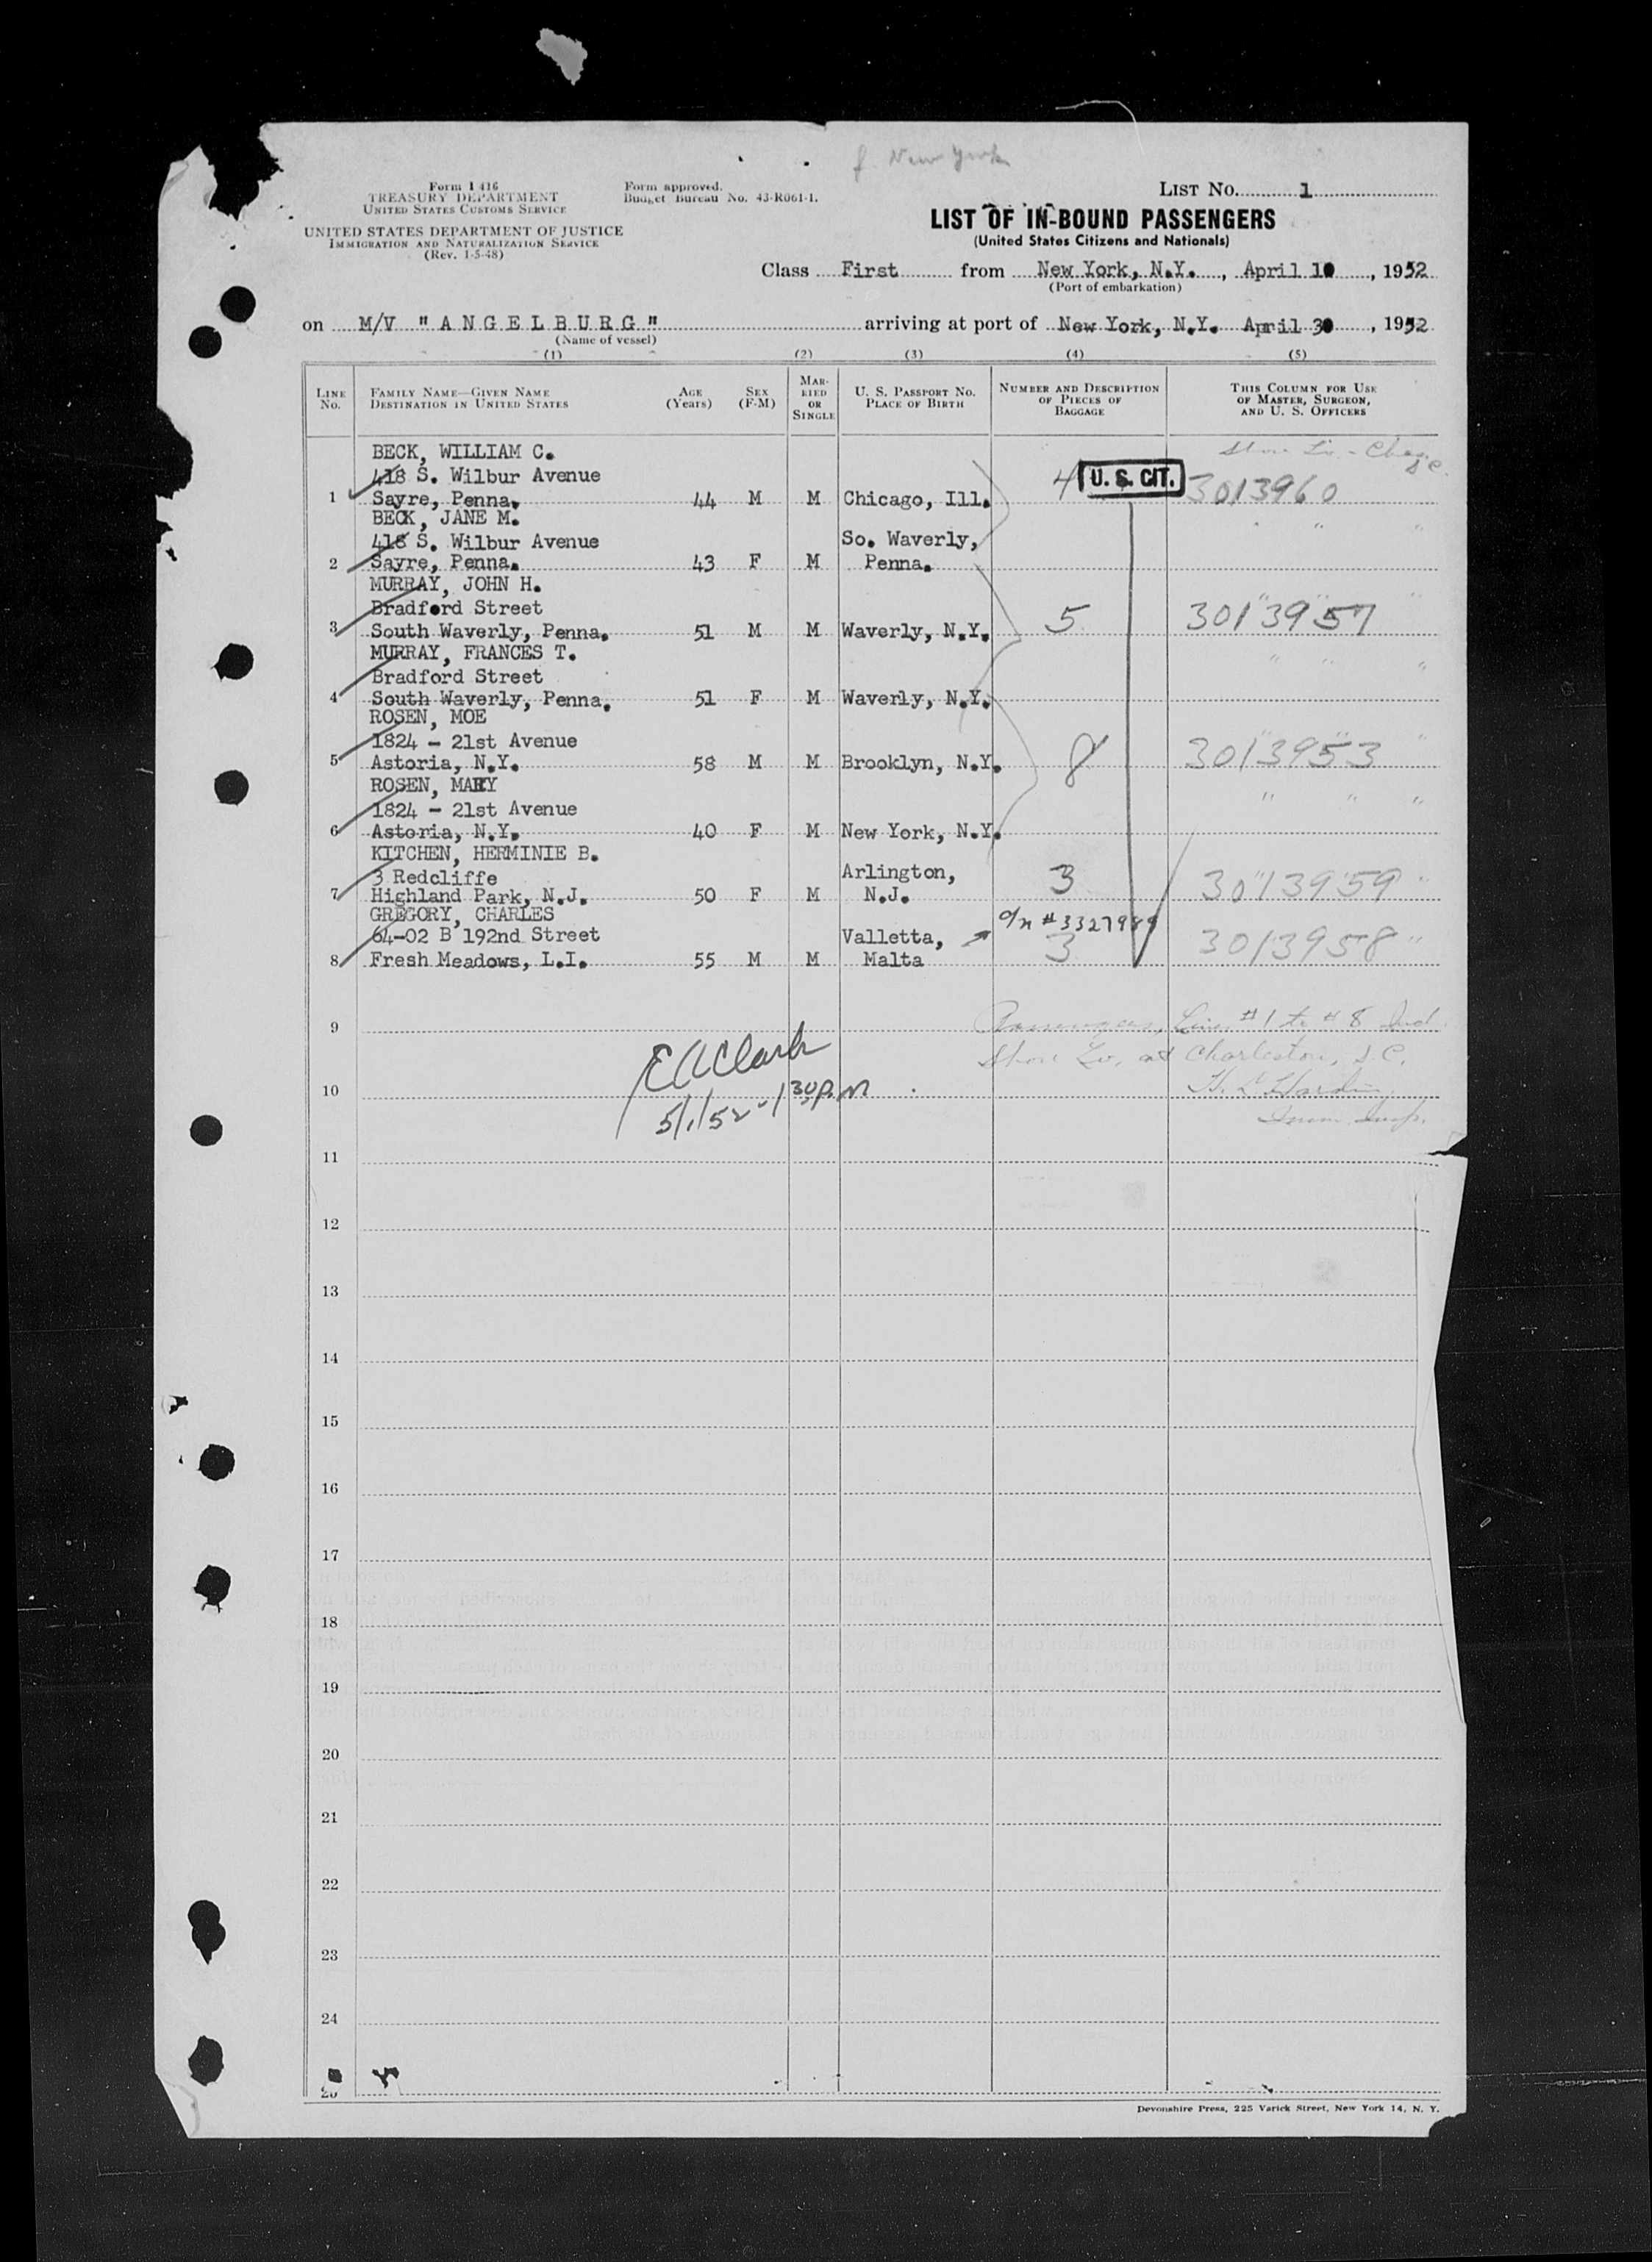 f. New York
Form I 416
TREASURY DEPARTMENT
UNITED STATES CUSTOMS SERVICE
UNITED STATES DEPARTMENT OF JUSTICE
IMMIGRATION AND NATURALIZATION SERVICE
(Rev. 1-5-48)
Form approved.
Budget Bureau No. 43-R061-1.
LIST No. 1
LIST OF IN-BOUND PASSENGERS
(United States Citizens and Nationals)
Class First from New York, N.Y., April 10, 1952
(Port of embarkation)
on M/V "ANGELBURG" arriving at port of New York, N.Y. April 30, 1952
(Name of vessel)
(1) (2) (3) (4) (5)
LINE No. FAMILY NAME—GIVEN NAME DESTINATION IN UNITED STATES AGE (Years) SEX (F-M) MARRIED OR SINGLE U. S. PASSPORT No. PLACE OF BIRTH NUMBER AND DESCRIPTION OF PIECES OF BAGGAGE THIS COLUMN FOR USE OF MASTER, SURGEON, AND U. S. OFFICERS
BECK, WILLIAM C.
418 S. Wilbur Avenue 4 U. S. CIT. 3013960
1 Sayre, Penna. 44 M M Chicago, Ill.
BECK, JANE M. " "
418 S. Wilbur Avenue So. Waverly,
2 Sayre, Penna. 43 F M Penna.
MURRAY, JOHN H.
Bradford Street 5 3013957
3 South Waverly, Penna. 51 M M Waverly, N.Y.
MURRAY, FRANCES T. " " "
Bradford Street
4 South Waverly, Penna. 51 F M Waverly, N.Y.
ROSEN, MOE
1824 - 21st Avenue 8 3013953 "
5 Astoria, N.Y. 58 M M Brooklyn, N.Y.
ROSEN, MARY " " "
1824 - 21st Avenue
6 Astoria, N.Y. 40 F M New York, N.Y.
KITCHEN, HERMINIE B.
3 Redcliffe Arlington, 3 3013959 "
7 Highland Park, N.J. 50 F M N.J.
GREGORY, CHARLES
64-02 B 192nd Street Valletta, 3 3013958 "
8 Fresh Meadows, L.I. 55 M M Malta
9
Passengers, Line #1 to #8 Incl
Shore Lv. at Charleston, S.C.
EAClark
10
5/1/52 - 1 30 P.M
11
12
13
14
15
16
17
18
19
20
21
22
23
24
Devonshire Press, 225 Varick Street, New York 14, N. Y.